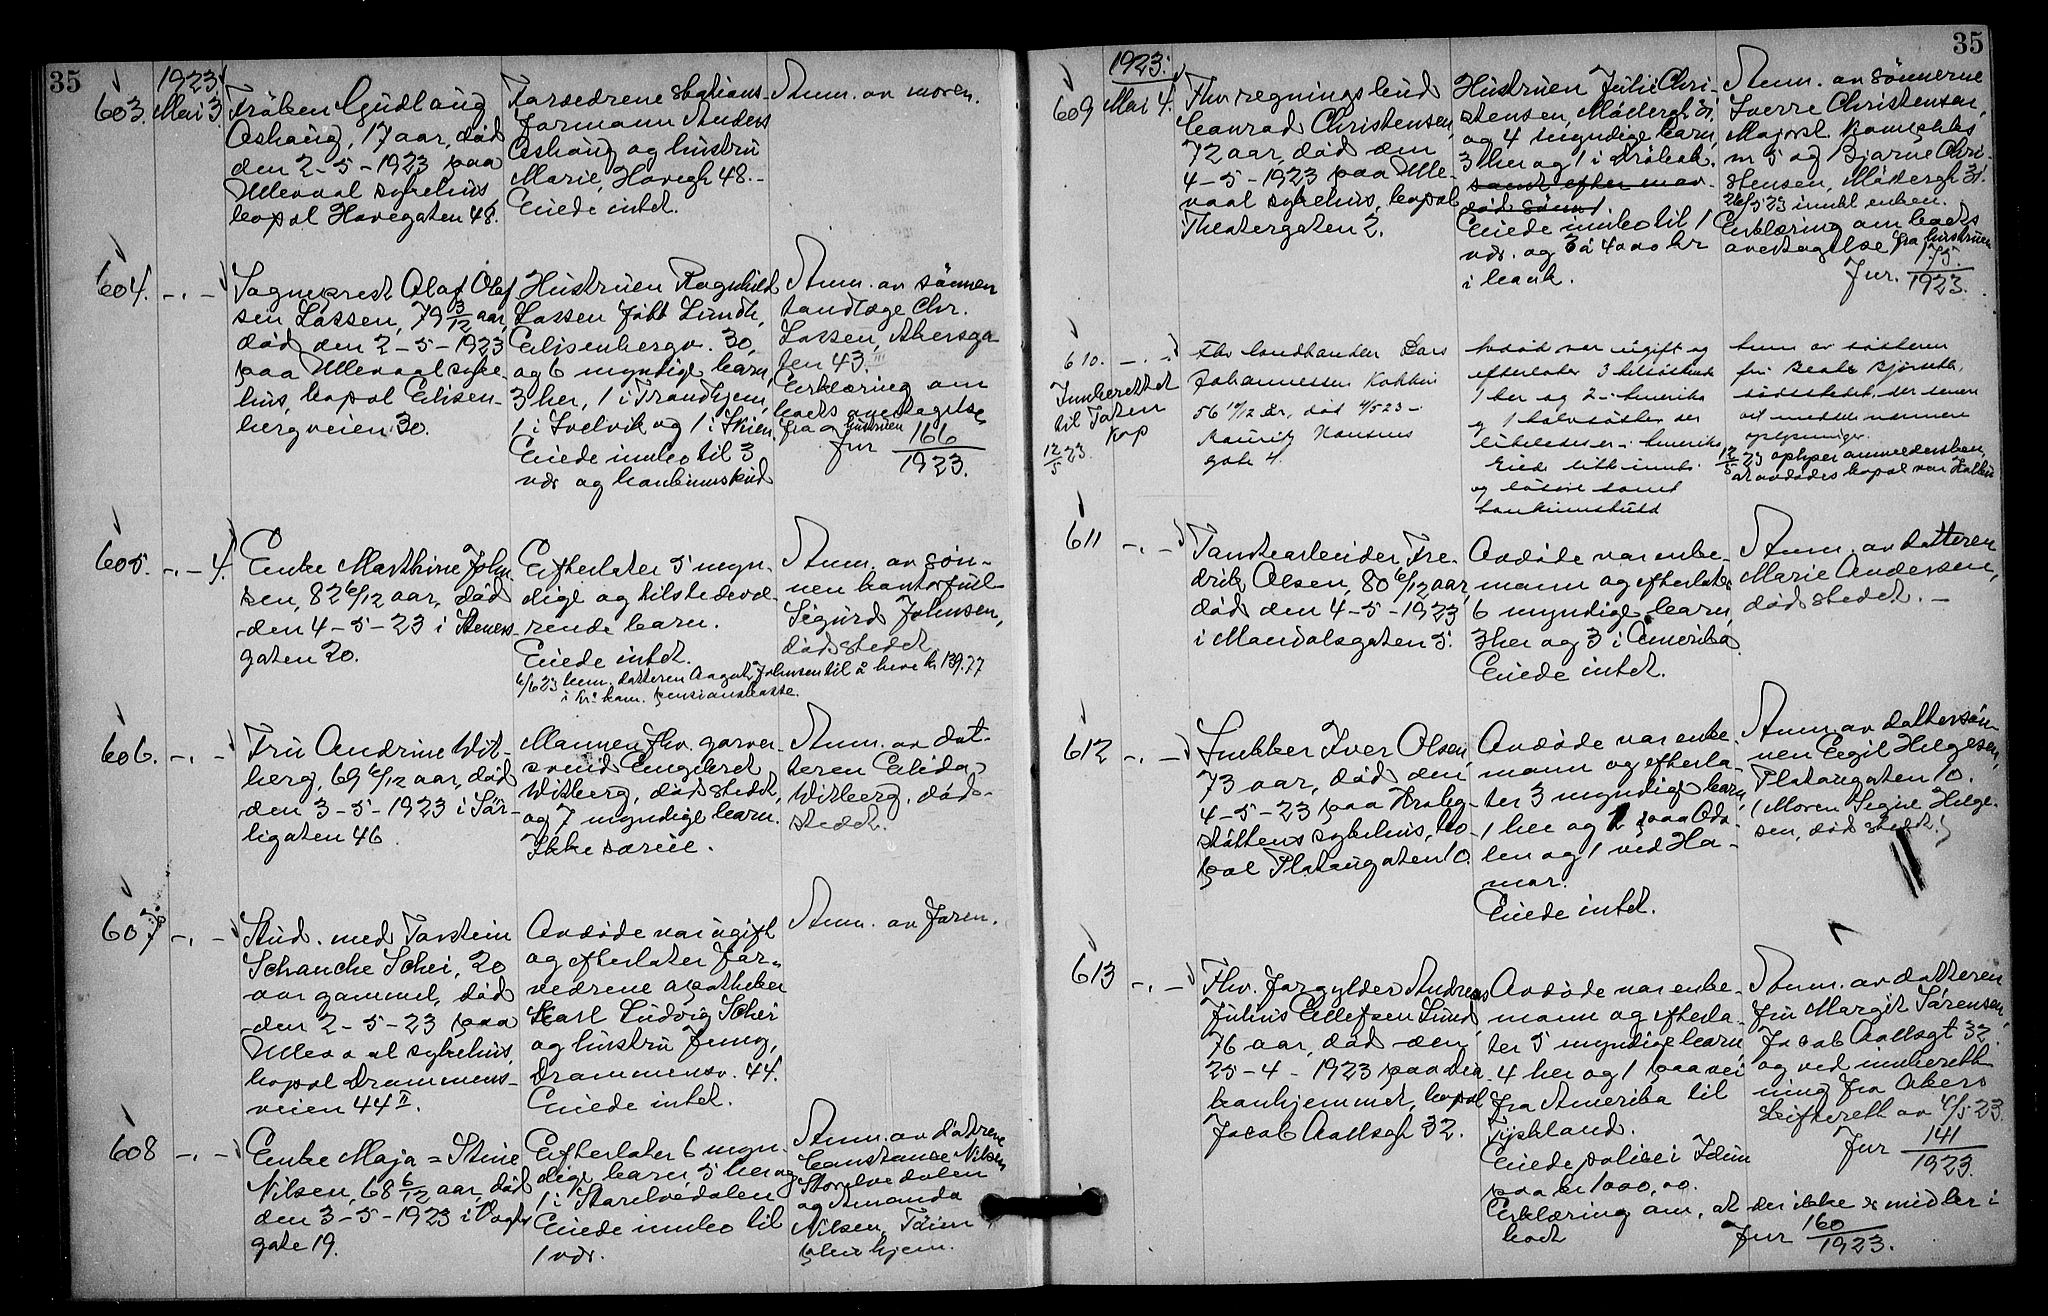 35
1923
603. Mai 3.
Frøken Gudlaug
Oshaug, 17 aar, død
den 2-5-1923 paa
Ullevaal sykehus
bopæl Havegaten 48.
Forældrene stations-
formann Anders
Oshaug og hustru
Marie, Havegt 48.-
Eiede intet.
Anm. av moren.
604. -.-
Sogneprest Olaf Olaf
sen Lassen, 79 3/12 aar,
død den 2-5-1923
paa Ullevaal syke-
hus, bopæl Elisen-
bergveien 30.
Hustruen Ragnhild
Lassen født Lundh,
Elisenbergv. 30,
og 6 myndige barn,
3 her, 1 i Trondhjem,
1 i Svelvik og 1 i Skien.
Eiede innbo til 3
vær og bankinnskud
Anm. av sønnen
tandlæge Chr.
Lassen, Akersga-
ten 43. III
Erklæring om
boets overtagelse
fra hustruen
Jnr 166/1923.
605. -.- 4.
Enke Marthine John-
sen, 82 6/12 aar, død
den 4-5-23 i Steners-
gaten 20.
Efterlater 5 myn-
dige og tilstedevæ-
rende barn.
Eiede intet.
Anm. av søn-
nen kontorful-
Sigurd Johnsen,
dødsstedet
6/6 23 bem. datteren Aagot Johnsen til å heve kr 139.77
i Kr.a kom. pensionskasse.
606. -.-
Fru Andrine Wit-
berg, 69 6/12 aar, død
den 3-5-1923 i Sør-
ligaten 46
Mannen fhv. garver-
svend Engebret
Witberg, dødsstedet,
og 7 myndige barn.
Ikke særeie.
Anm. av dat-
teren Elida
Witberg, døds-
stedet.
607. -.-
Stud. med Torstein
Schanche Schei, 20
aar gammel, død
den 2-5-23 paa
Ullevaal sykehus,
bopæl Drammens-
veien 44 II.
Avdøde var ugift
og efterlater for-
ældrene apotheker
Karl Ludvig Schei
og hustru Jenny,
Drammensv. 44.
Eiede intet.
Anm. av faren.
608 -.-
Enke Maja = Stine
Nilsen, 68 6/12 aar, død
den 3-5-1923 i Vogts
gate 19.
Efterlater 6 myn-
dige barn, 5 her og
1 i Storelvedalen
Eiede innbo til
1 vær.
Anm. av døtrene
Constance Nilsen
Storelvedalen
og Amanda
Nilsen, Tøien
pleiehjem.
35
1923.
609 Mai 4.
Fhv regningsbud
Conrad Christensen,
72 aar, død den
4-5-1923 paa Ulle-
vaal sykehus, bopæl
Theatergaten 2.
Hustruen Julie Chri-
stensen, Møllergt 31,
og 4 myndige barn,
3 her og 1 i Drøbak.
samt efter en av-
død sønn 1.
Eiede innbo til 1
vær. og 3 à 4000 kr
i bank.
Anm. av sønnerne
Sverre Christensen,
nr 5 og Bjarne Chri-
stensen, Møllergt 31.
26/5 23 innkl. enken.
Erklæring om boets
overtagelse fra hustruen
Jnr. 175/1923.
610. -.-
Innberettet
til Toten
12/5 23.
Fhv landhandler Lars
Johannessen Kolbu
56 10/12 år, død 4/5 23 -
Mauritz Hansens
gate 4.
Avdød var ugift og
efterlater 3 helsøskende
1 her og 2 i Amerika
og 1 halvsøster der
likeledes er i Amerika
Eied litt innbo
og løsøre samt
bankinnskudd
Anm. av søsteren
fru Beate Bjørnsti,
dødsstedet, der senere
vil meddele nærmere
oplysninger.
12/5 23 oplyser anmeldersken,
at avdødes bopæl var Kolbu
611 -.-
Tomtearbeider Fre-
drik Olsen, 80 6/12 aar,
død den 4-5-1923
i Mandalsgaten 5.
Avdøde var enke-
mann og efterlater
6 myndige barn,
3 her og 3 i Amerika
Eiede intet.
Anm. av datteren
Marie Andersen,
dødsstedet.-
612 -.-
Snekker Iver Olsen,
73 aar, død den
4-5-23 paa Krohg-
støttens sykehus, bo-
pæl Platousgaten 10.
Avdøde var enke-
mann og efterla-
ter 3 myndige barn,
1 her og 1 paa Oda-
len og 1 ved Ha-
mar.
Eiede intet.
Anm. av dattersøn-
nen Egil Helgesen,
Platousgaten 10.
(Moren Signe Helge-
sen, dødsstedet.)
613 -.-
Fhv. forgylder Andreas
Julius Ellefsen Lund
76 aar, død den
25-4-1923 paa Dia
konhjemmet, bopæl
Jacob Aallsgt 32.
Avdøde var enke-
mann og efterla-
ter 5 myndige barn,
4 her og 1 paa vei
fra Amerika til
Tyskland.
Eiede police i Idun
paa kr 1000,00.
Erklæring om, at der ikke er midler i
boet
Anm. av datteren
fru Margit Sørensen,
Jacob Aallsgt 32.
og ved innberett-
ning fra Akers
skifterett av 4/5 23.
Jnr 141/1923.
Jnr 160/1923.